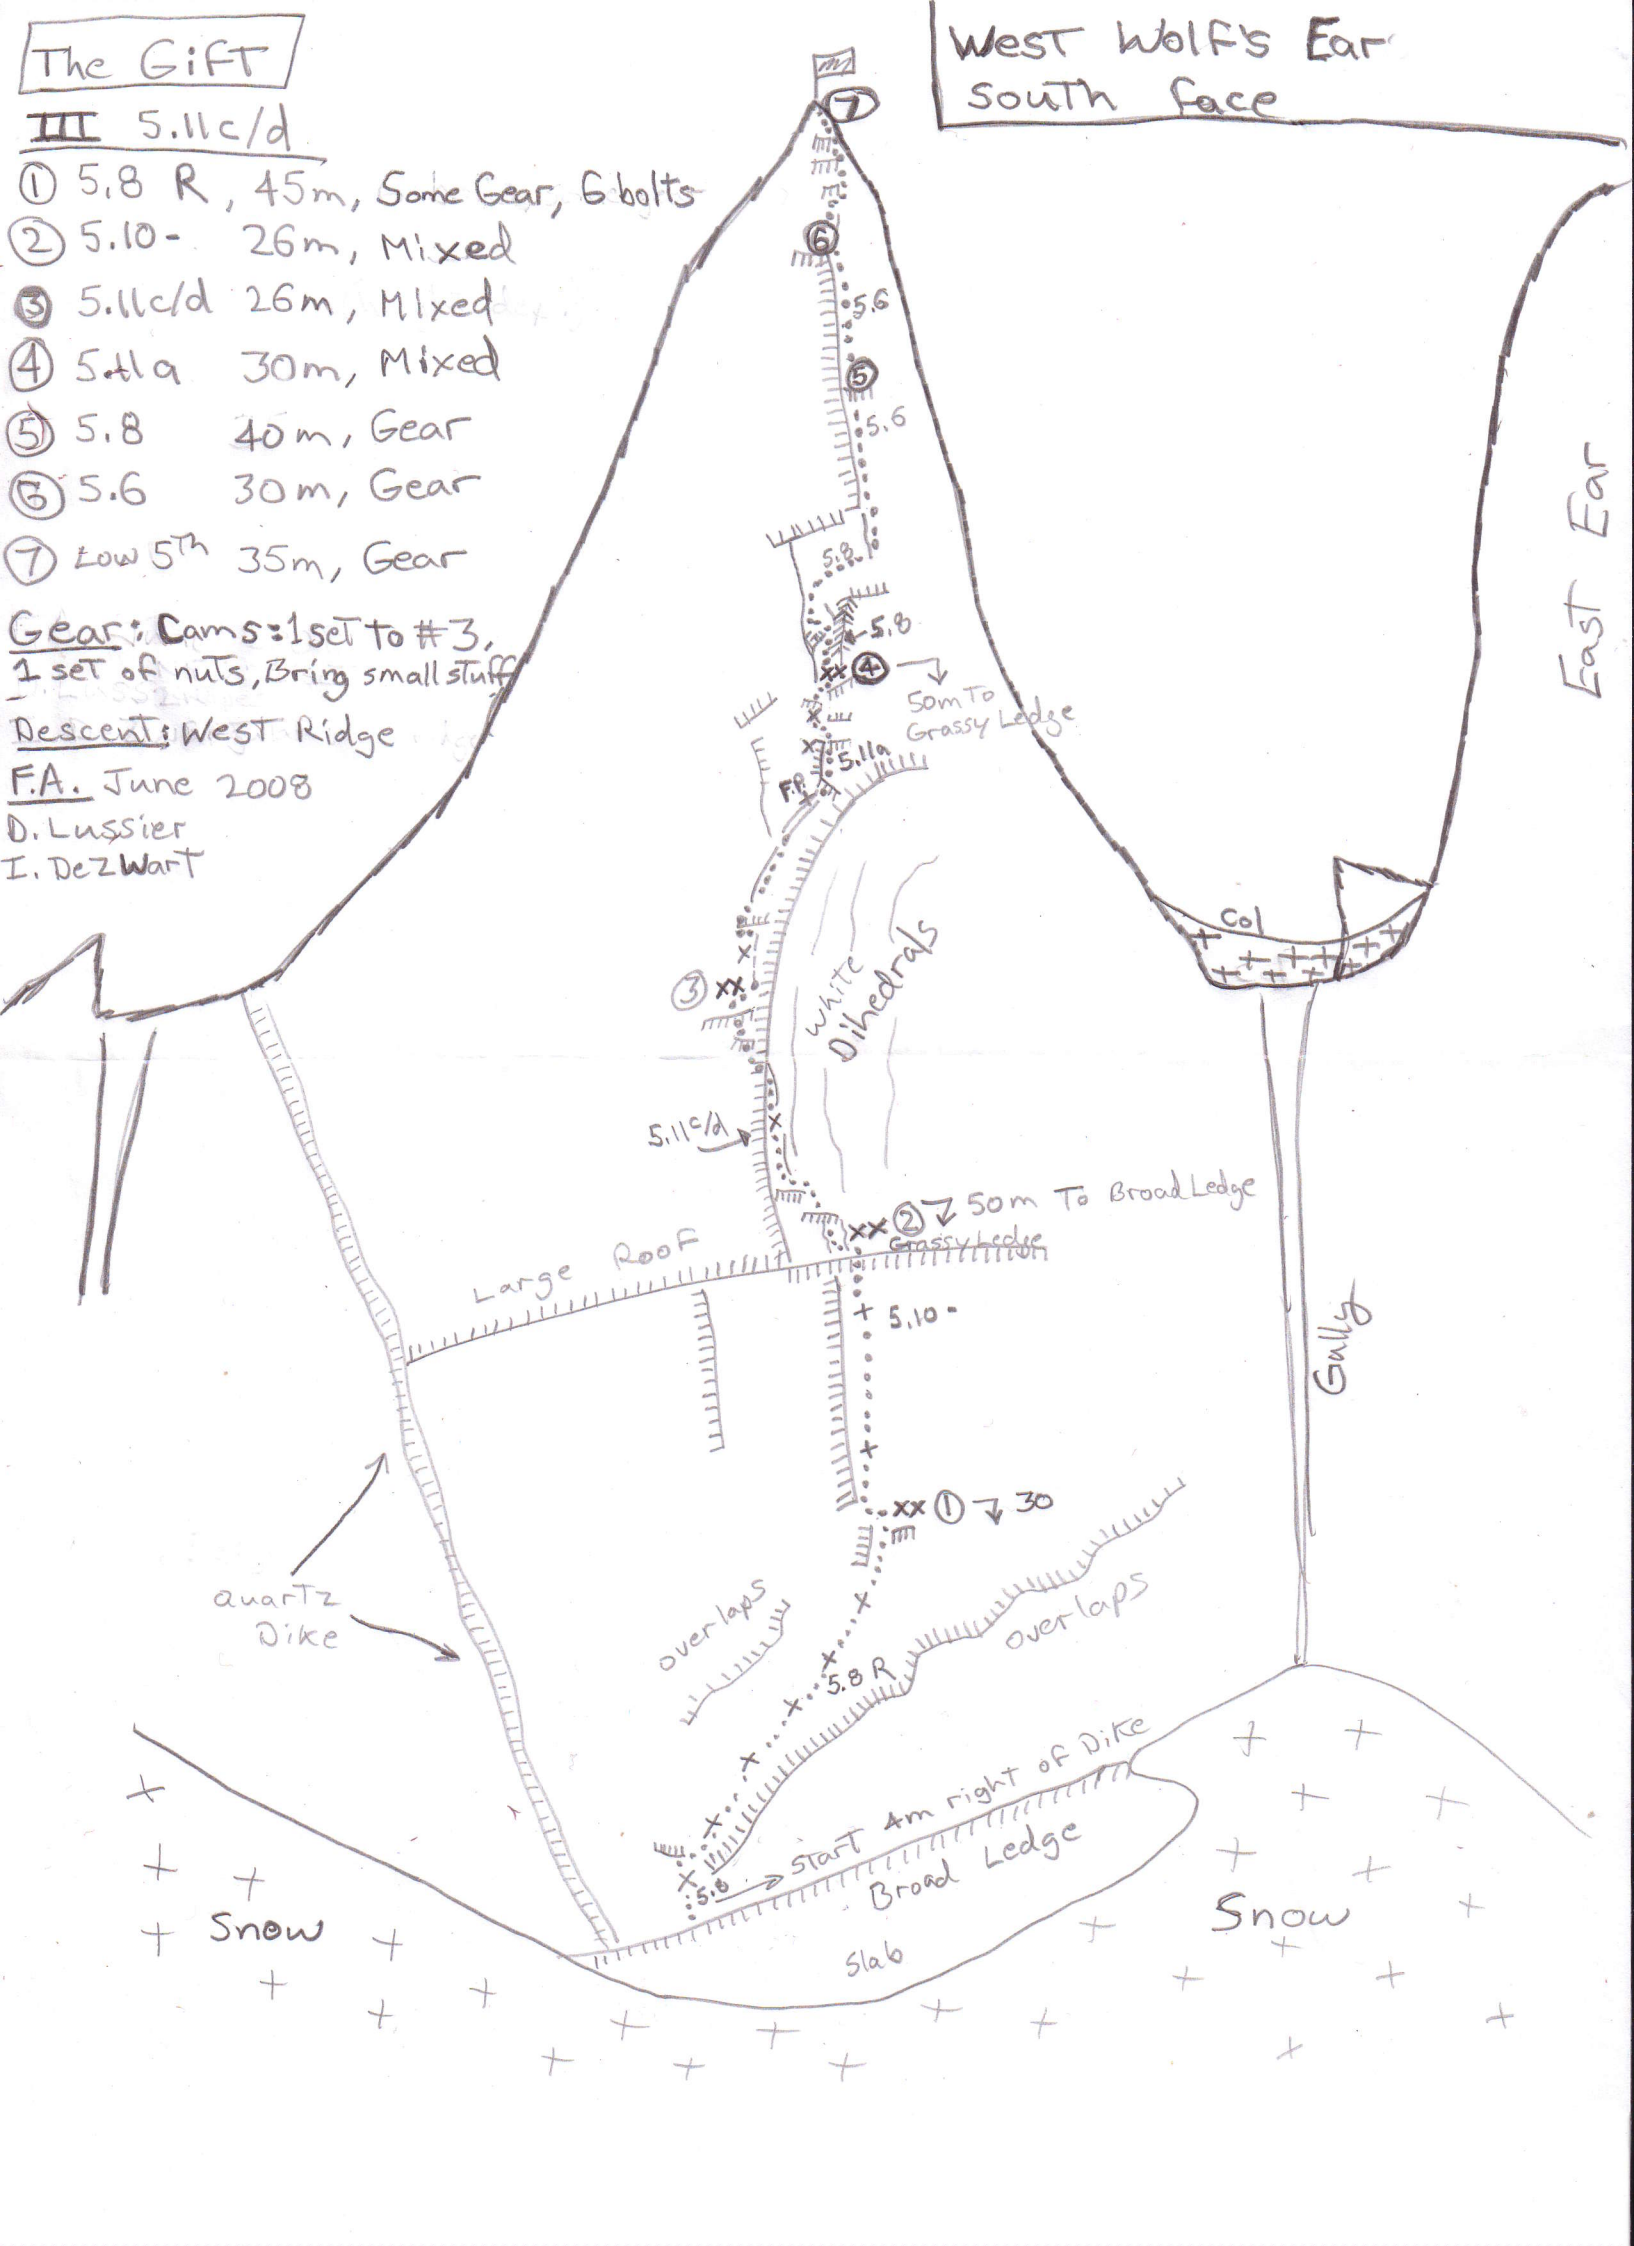 The Gift
III 5.11c/d
① 5.8 R, 45m, Some Gear, 6 bolts
② 5.10- 26m, Mixed
③ 5.11c/d 26m, Mixed
④ 5.11a 30m, Mixed
⑤ 5.8 40m, Gear
⑥ 5.6 30m, Gear
⑦ Low 5th 35m, Gear
Gear: Cams: 1 set to #3,
1 set of nuts, Bring small stuff
Descent: West Ridge
F.A. June 2008
D. Lussier
I. DeZwart
West Wolf's Ear
South face
⑦
⑥
5.6
⑤
5.6
5.8
5.8
xx ④
50m To
Grassy Ledge
5.11a
F.P.
East Ear
Col
White
Dihedrals
③ xx
5.11c/d
xx ② 50m To Broad Ledge
Grassy Ledge
Large Roof
5.10-
Gully
xx ① 30
Quartz
Dike
overlaps
overlaps
5.8 R
5.8
Start 4m right of Dike
Broad Ledge
Slab
Snow
Snow